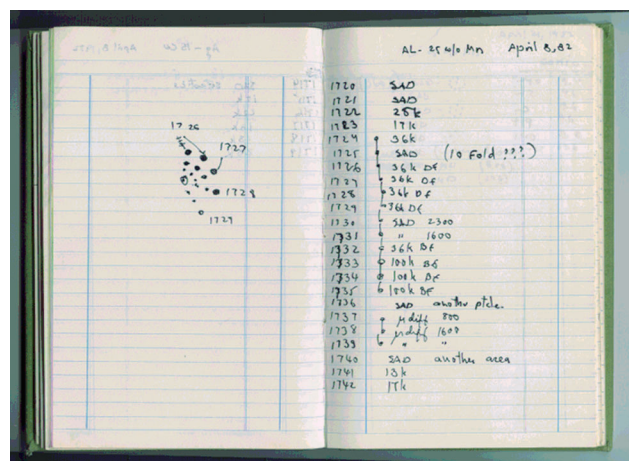 1726
1727
1728
1729
AL- 25 w/o Mn April 8, 82
1720 SAD
1721 SAD
1722 25k
1723 17k
1724 36k
1725 SAD (10 Fold ???)
1726 36k Df
1727 36k Df
1728 36k Df
1729 36k Df
1730 SAD 2300
1731 " 1600
1732 36k Bf
1733 100k Bf
1734 100k Df
1735 100k BF
1736 SAD another ptcle.
1737 μdiff 800
1738 μdiff 1600
1739 " "
1740 SAD another area
1741 13k
1742 17k